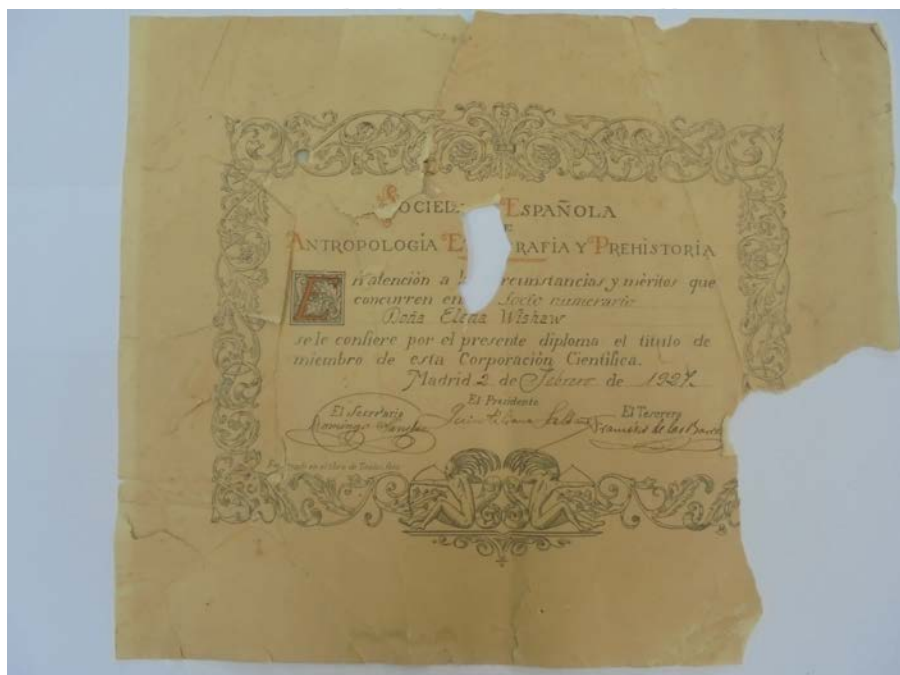 SOCIED ESPAÑOLA
E
ANTROPOLOGÍA E RAFÍA Y PREHISTORIA
En atención a l rcunstancias y méritos que
concurren en Socio numerario
Doña Elena Wishaw
se le confiere por el presente diploma el título de
miembro de esta Corporación Científica.
Madrid 2 de Febrero de 1927.
El Secretario El Presidente El Tesorero
Domingo Francisco de las Barras
en el libro de Títulos, folio